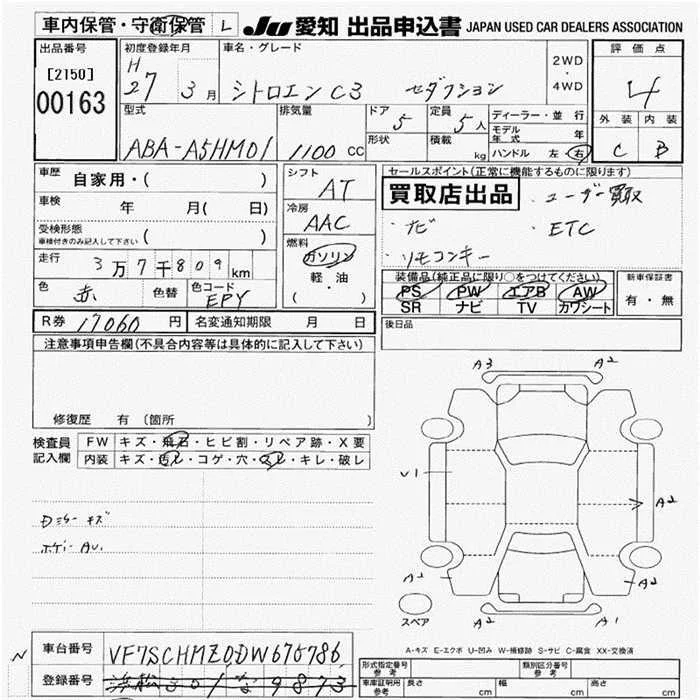 車内保管・守衛保管 L JU 愛知 出品申込書 JAPAN USED CAR DEALERS ASSOCIATION
出品番号 初度登録年月 車名・グレード 評価点
[2150] H 2WD
00163 27 3月 シトロエン C3 セダクション ・ 4
4WD
型式 排気量 ドア 定員 ディーラー・並行 外装 内装
5 5人 モデル年式 年
ABA-A5HM01 1100 CC 形状 積載 kg ハンドル 左 右 C B
車歴 自家用・( ) シフト AT セールスポイント(正常に機能するものに限ります)
車検 年 月( 日) 冷房 AAC 買取店出品 ・ユーザー買取
受検形態 ( ) ・ナビ ・ETC
車検付きのみ記入して下さい
・リモコンキー
走行 3万7千809km 燃料 ガソリン 装備品(純正品に限り○をつけてください) 新車保証書
軽・油 PS PW エアB AW 有・無
色 赤 色替 色コード EPY ( ) SR ナビ TV カワシート
R券 17060円 名変通知期限 月 日 後日品
注意事項申告欄(不具合内容等は具体的に記入して下さい)
A3 A2
修復歴 有 (箇所 )
検査員 FW キズ・飛石・ヒビ割・リペア跡・X要
記入欄 内装 キズ・汚レ・コゲ・穴・スレ・キレ・破レ
U1
A2
キズ
A2 A2
スペア A2 A1
A-キズ E-エクボ U-凹み W-補修跡 S-サビ C-腐食 XX-交換済
N 車台番号 VF7SCHMZ0DW676786
登録番号 浜松 501 な 9873
形式指定番号 参考 類別区分番号 参考
車庫証明用 参考 長さ cm 幅 cm 高さ cm